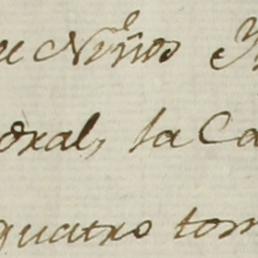 de Niños
oral, la Ca
quatro tom